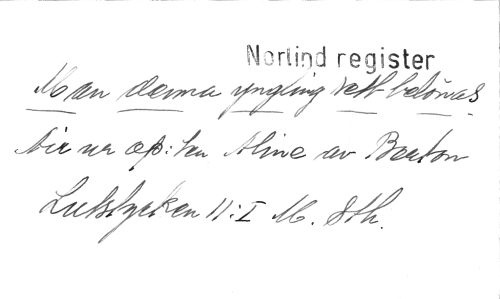 Norlind register
Man denna yngling rätt belönas
Air ur op:ken Aline av Berton
Lutstycken II:I M. Sth.